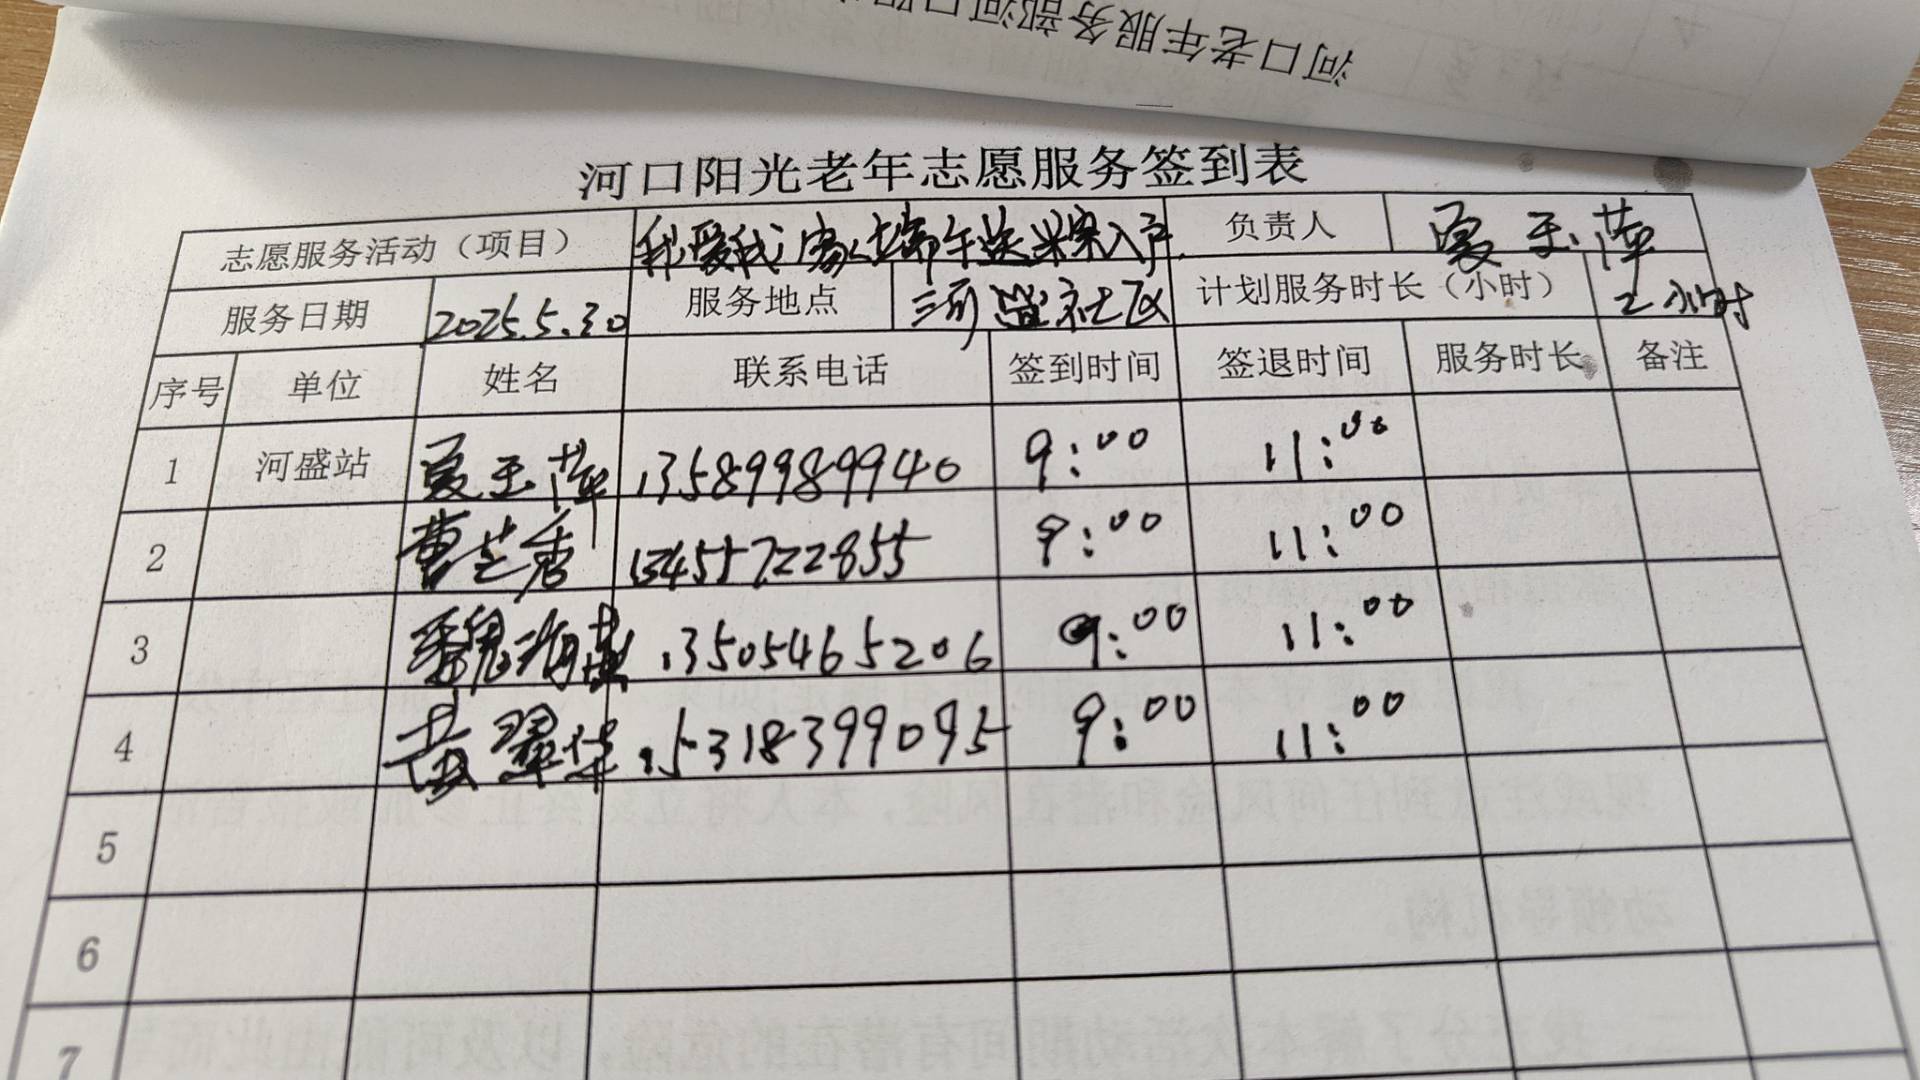 河口老年服务部河口阳
河口阳光老年志愿服务签到表
志愿服务活动（项目） 我爱我家、端午送米粽入户 负责人 夏玉萍
服务日期 2025.5.30 服务地点 三河盛社区 计划服务时长（小时） 2小时
序号 单位 姓名 联系电话 签到时间 签退时间 服务时长 备注
1 河盛站 夏玉萍 13589989940 9:00 11:00
2 曹芝秀 13455722855 9:00 11:00
3 魏海燕 13505465206 9:00 11:00
4 黄翠华 15318399095 9:00 11:00
5
6
7